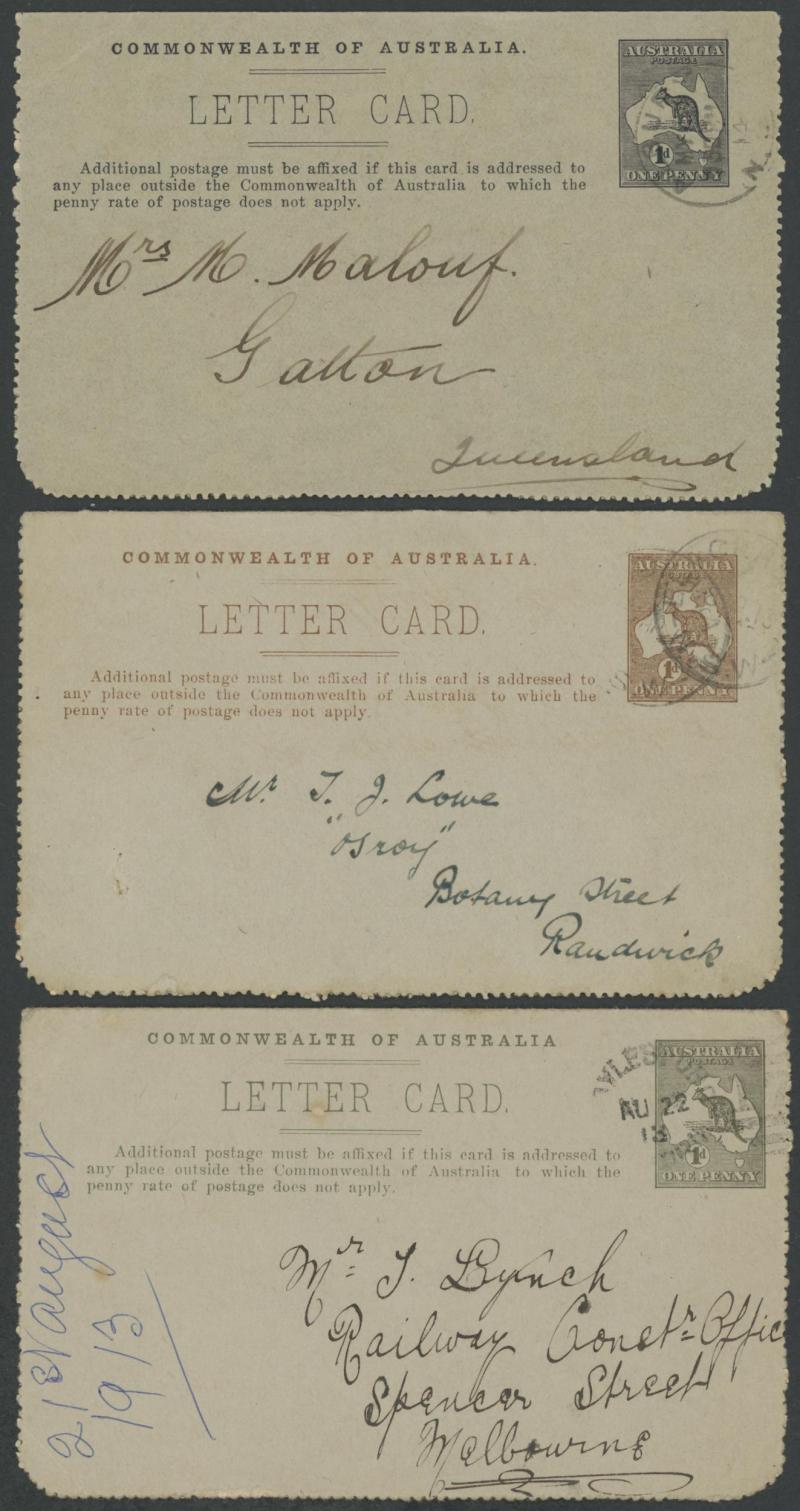 COMMONWEALTH OF AUSTRALIA.
LETTER CARD.
Additional postage must be affixed if this card is addressed to
any place outside the Commonwealth of Australia to which the
penny rate of postage does not apply.
AUSTRALIA
POSTAGE
1d
ONE PENNY
Mrs M. Malouf.
Gatton
Queensland
COMMONWEALTH OF AUSTRALIA.
LETTER CARD.
Additional postage must be affixed if this card is addressed to
any place outside the Commonwealth of Australia to which the
penny rate of postage does not apply.
AUSTRALIA
POSTAGE
1d
ONE PENNY
Mr. T. J. Lowe
"Osroy"
Botany Street
Randwick
COMMONWEALTH OF AUSTRALIA
LETTER CARD.
Additional postage must be affixed if this card is addressed to
any place outside the Commonwealth of Australia to which the
penny rate of postage does not apply.
AUSTRALIA
POSTAGE
1d
ONE PENNY
AU 22
13
21st August
1913
Mr. J. Lynch
Railway Constr. Office
Spencer Street
Melbourne